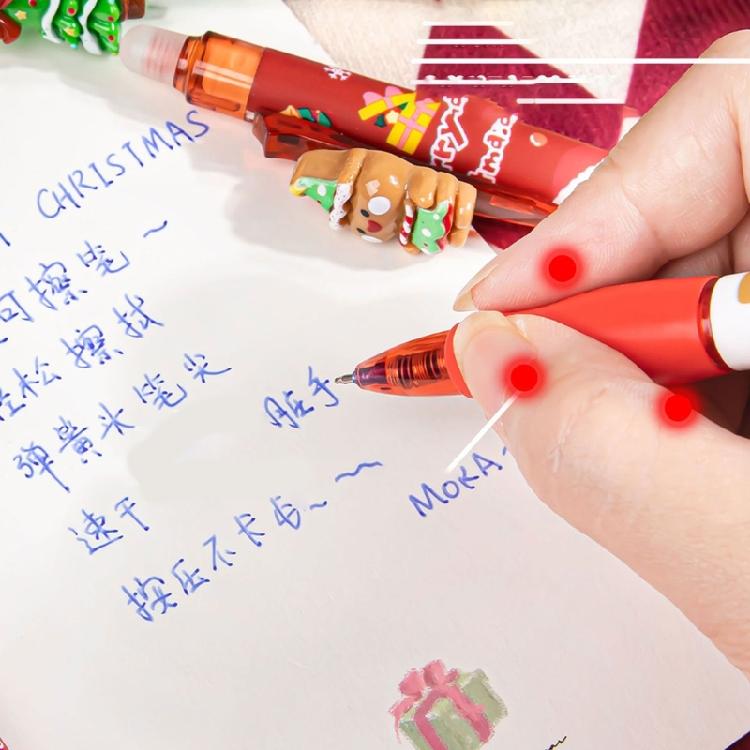 CHRISTMAS
可擦笔~
轻松擦拭
弹簧头笔尖
脏手
速干
按压不卡
MOKA